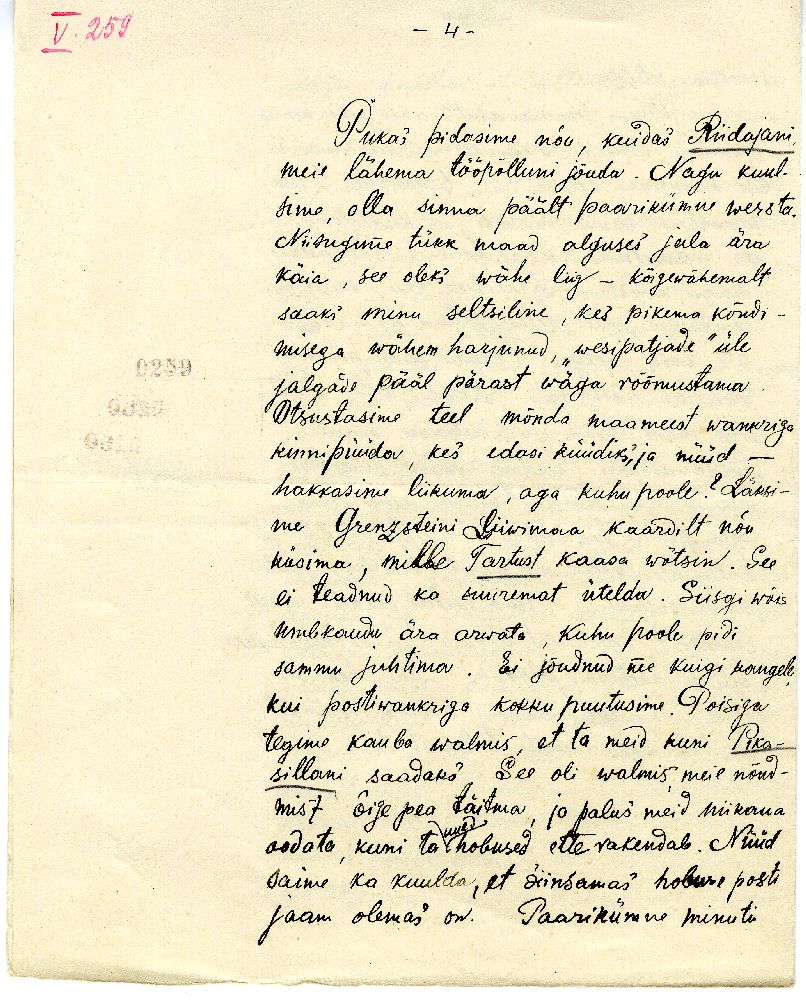 V. 259
- 4 -
Pukas pidasime nõu, kuidas Riidajani,
meie lähema tööpõlluni jõuda. Nagu kuul-
sime, olla sinna päält paarikümne wersta.
Niisugune tükk maad alguses jala ära
käia, see oleks wähe liig – kõigewähemalt
saaks minu seltsiline, kes pikema kõndi-
misega wähem harjunud, „wesipatjade" üle
jalgade pääl pärast wäga rõõmustama.
Otsustasime teel mõnda maameest wankriga
kinnipüüda, kes edasi küüdiks, ja nüüd —
hakkasime liikuma, aga kuhu poole? Läksi-
me Grenzsteini Liiwimaa kaardilt nõu
küsima, mille Tartust kaasa wõtsin. See
ei teadnud ka suuremat ütelda. Siisgi wõis
umbkaudu ära arwata, kuhu poole pidi
sammu juhtima. Ei jõudnud me kuigi kaugele,
kui postiwankriga kokku puutusime. Poisiga
tegime kauba walmis, et ta meid kuni Pika-
sillani saadaks. See oli walmis meie nõud-
mist õige pea täitma, ja palus meid niikaua
oodata, kuni ta uued hobused ette rakendab. Nüüd
saime ka kuulda, et siinsamas hobuse posti
jaam olemas on. Paarikümne minuti
0259